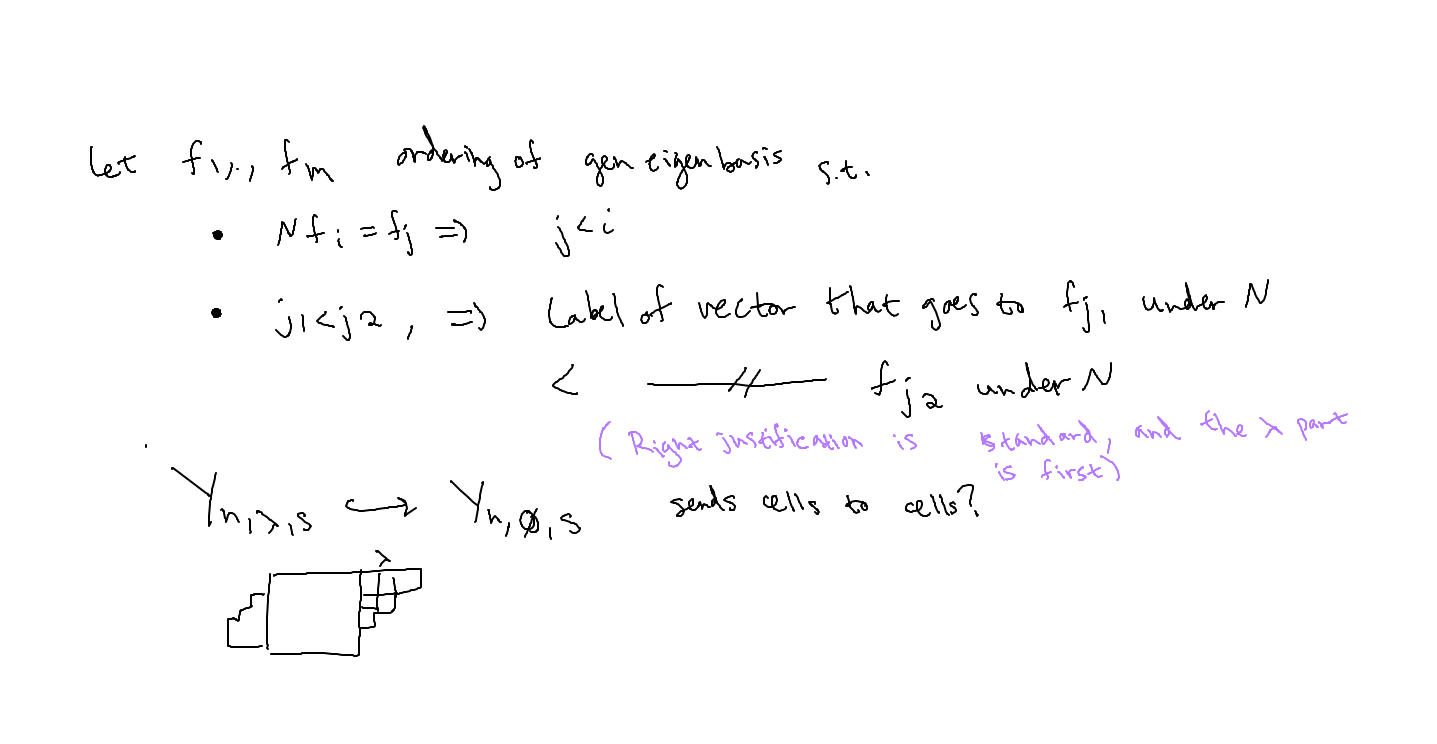 Let f₁,.., fₘ ordering of gen eigenbasis s.t.
• N fᵢ = fⱼ ⇒ j < i
• j₁ < j₂, ⇒ Label of vector that goes to f_{j₁} under N
< —//— f_{j₂} under N
(Right justification is standard, and the λ part
is first)
Y_{n,λ,s} ↪ Y_{n,∅,s} sends cells to cells?
λ